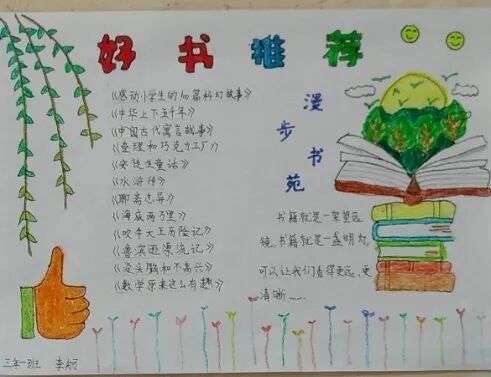 好书推荐
《感动小学生的100篇科幻故事》
《中华上下五千年》
《中国古代寓言故事》
《查理和巧克力工厂》
《安徒生童话》
《水浒传》
《聊斋志异》
《海底两万里》
《吹牛大王历险记》
《鲁滨逊漂流记》
《没头脑和不高兴》
《数学原来这么有趣》
漫步书苑
书籍就是一架望远
镜,书籍就是一盏明灯,
可以让我们看得更远、更
清晰……
三年一班 李